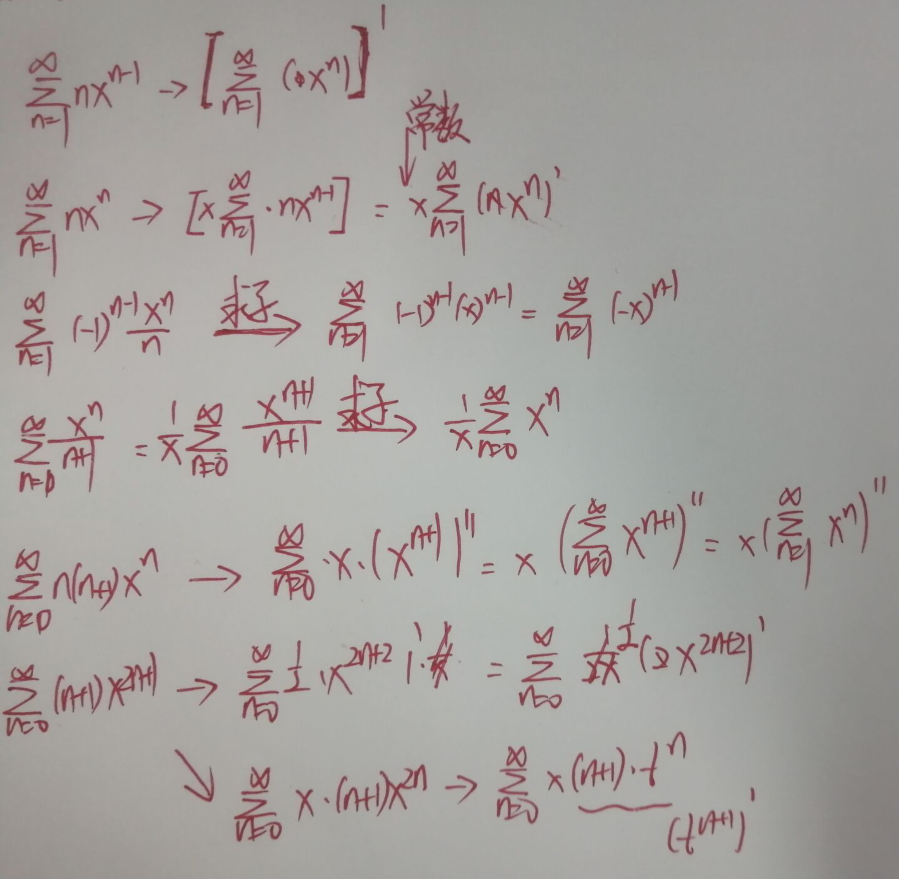 ∑_{n=1}^{∞} nx^{n-1} → [∑_{n=1}^{∞} (x^n)]'
常数
∑_{n=1}^{∞} nx^n → [x∑_{n=1}^{∞}·nx^{n-1}] = x∑_{n=1}^{∞} (x^n)'
∑_{n=1}^{∞} (-1)^{n-1} x^n/n 求导→ ∑_{n=1}^{∞} (-1)^{n-1}(x)^{n-1} = ∑_{n=1}^{∞} (-x)^{n-1}
∑_{n=0}^{∞} x^n/(n+1) = 1/x ∑_{n=0}^{∞} x^{n+1}/(n+1) 求导→ 1/x ∑_{n=0}^{∞} x^n
∑_{n=0}^{∞} n(n+1)x^n → ∑_{n=0}^{∞}·x·(x^{n+1})'' = x(∑_{n=0}^{∞} x^{n+1})'' = x(∑_{n=1}^{∞} x^n)''
∑_{n=0}^{∞} (n+1)x^{2n+1} → ∑_{n=0}^{∞} 1/2·(x^{2n+2})' = ∑_{n=0}^{∞} 1/2(x^{2n+2})'
↘ ∑_{n=0}^{∞} x·(n+1)x^{2n} → ∑_{n=0}^{∞} x(n+1)·t^n
(t^{n+1})'